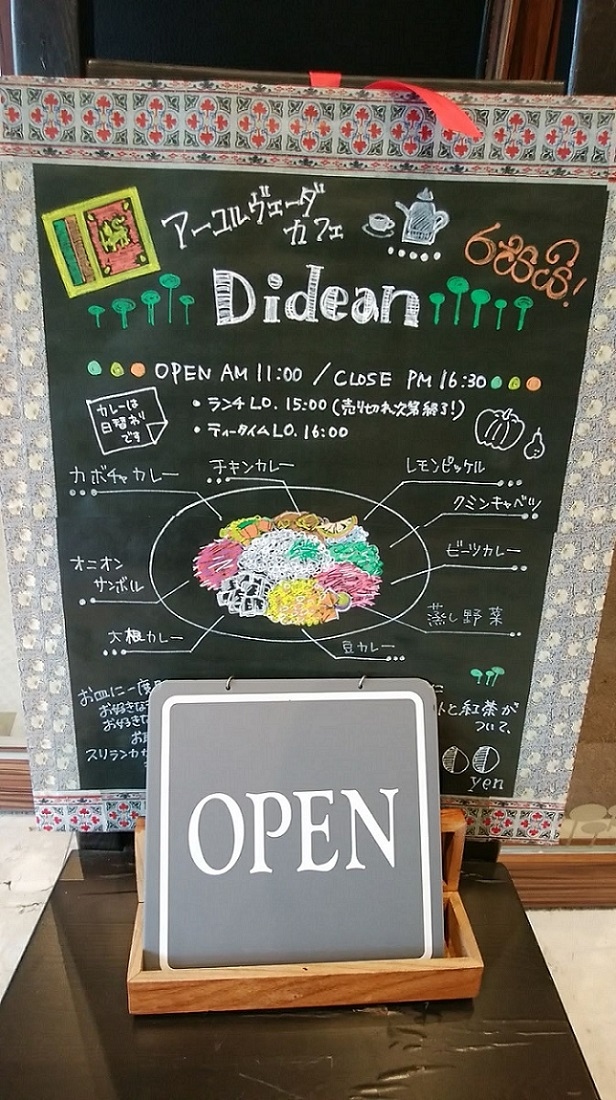 アーユルヴェーダ
カフェ
Didean
OPEN AM 11:00 / CLOSE PM 16:30
カレーは
日替わり
です
• ランチLO. 15:00 (売り切れ次第終了!)
• ティータイムLO. 16:00
カボチャカレー
チキンカレー
レモンピッケル
クミンキャベツ
オニオン
サンボル
ビーツカレー
大根カレー
豆カレー
蒸し野菜
お皿に一度
お好きな
お好きな
スリランカ
と紅茶が
ついて、
yen
OPEN